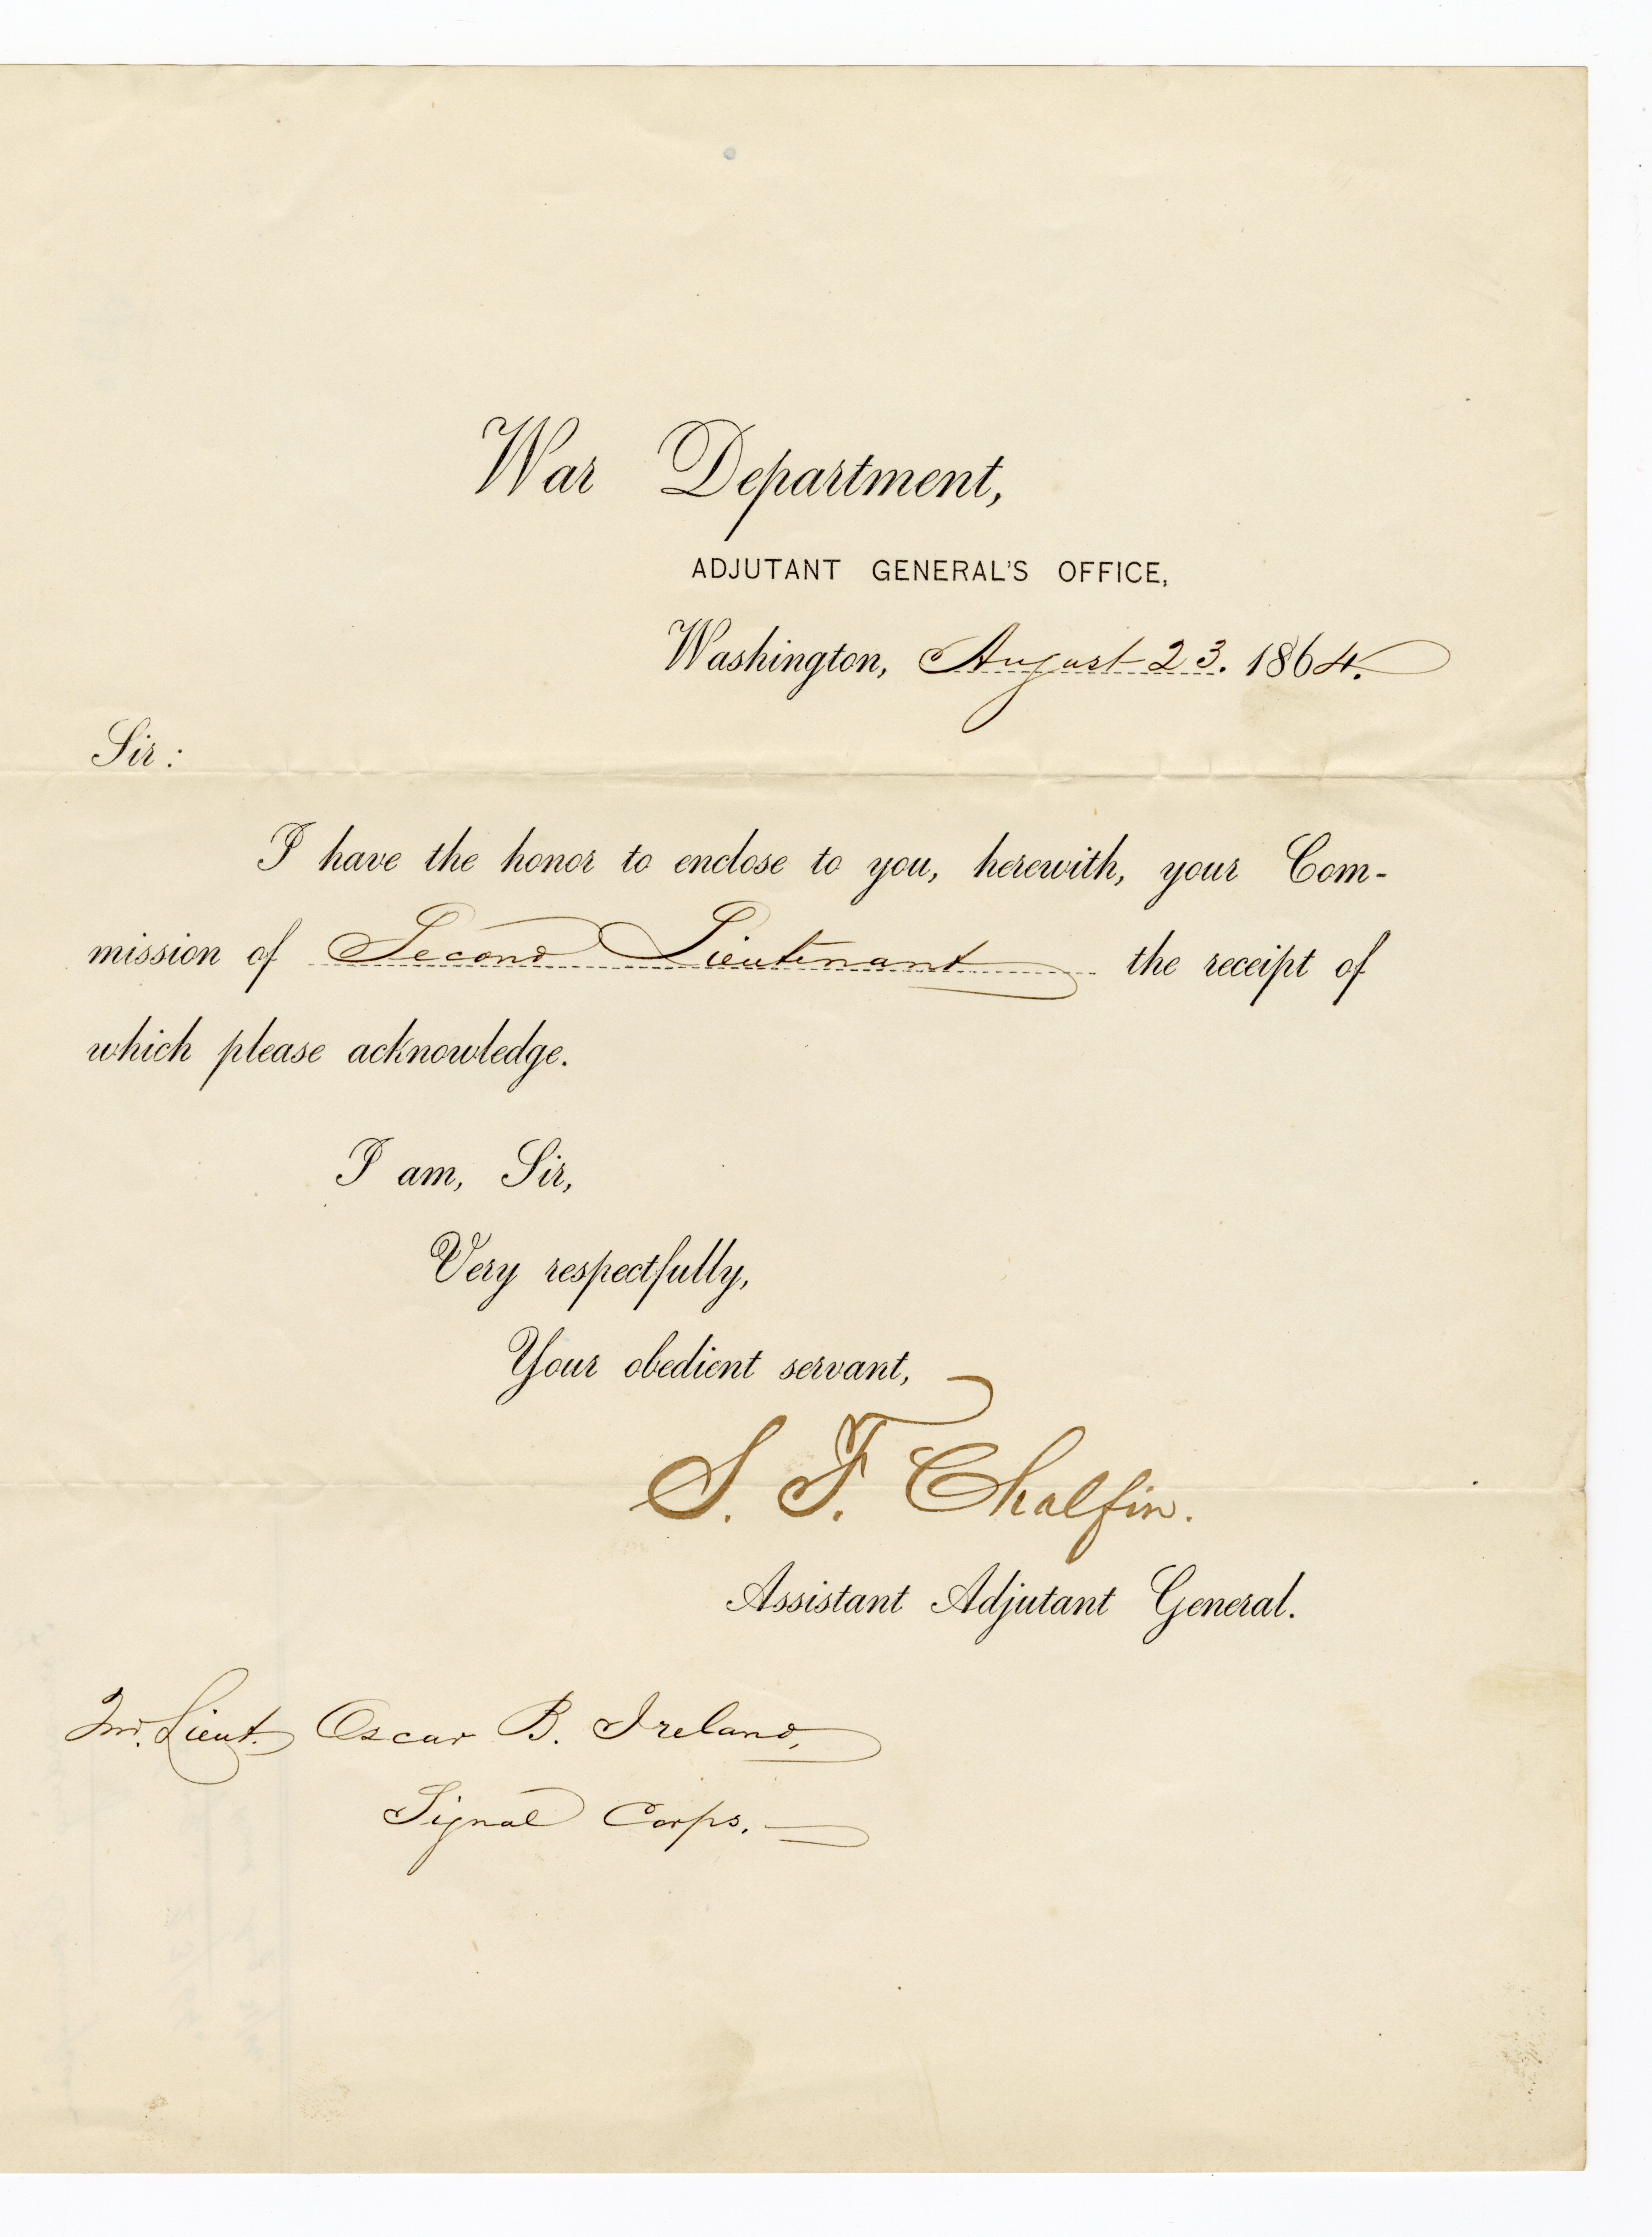 War Department,
ADJUTANT GENERAL'S OFFICE,
Washington, August 23. 1864.
Sir:
I have the honor to enclose to you, herewith, your Com-
mission of Second Lieutenant the receipt of
which please acknowledge.
I am, Sir,
Very respectfully,
Your obedient servant,
S. F. Chalfin.
Assistant Adjutant General.
Lieut. Oscar B. Ireland,
Signal Corps.